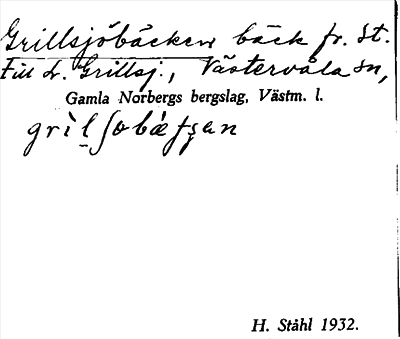 Grillsjöbäcken bäck fr. St.
till L. Grillsj., Västervåla sn,
Gamla Norbergs bergslag, Västm. l.
H. Ståhl 1932.